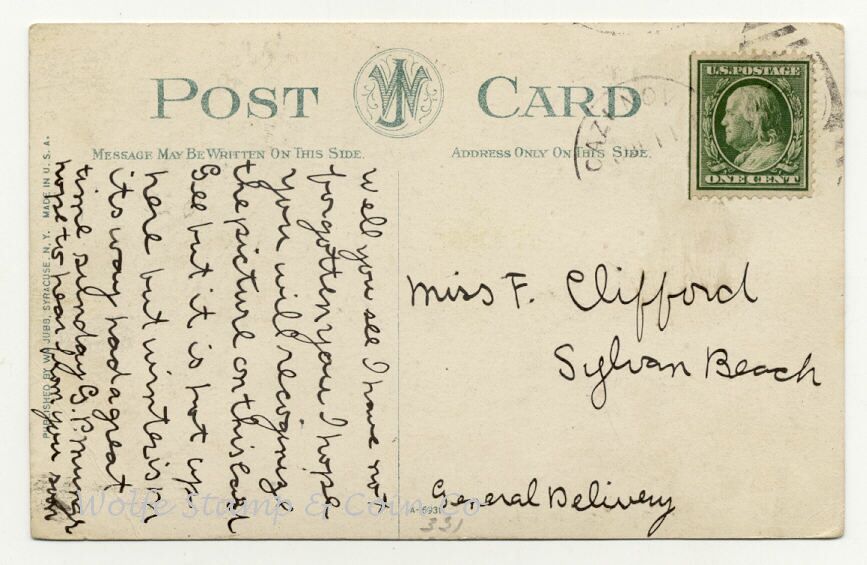 POST CARD
MESSAGE MAY BE WRITTEN ON THIS SIDE.
ADDRESS ONLY ON THIS SIDE.
U.S. POSTAGE
ONE CENT
CAZENOVI
11
well you see I have not
forgotten you I hope
you will recoginize
the picture on this card
Gee but it is hot up
here but winter is on
its way had a great
time sunday G.P.
hope to hear from you soon
Miss F. Clifford
Sylvan Beach
General Delivery
A-6931
331
PUBLISHED BY WM JUBB, SYRACUSE, N. Y. MADE IN U. S. A.
Wolfe Stamp & Coin Co